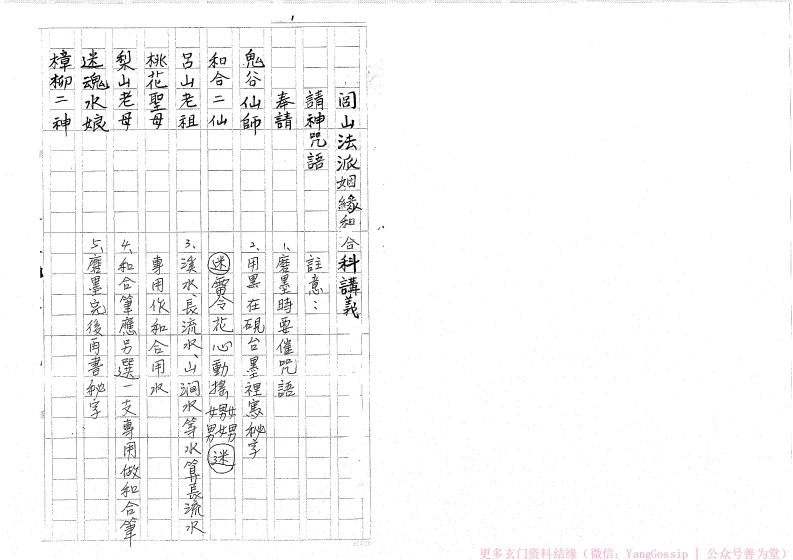 1
閭山法派姻緣和合科講義
請神咒語
奉請
鬼谷仙師
和合二仙
呂山老祖
桃花聖母
梨山老母
迷魂水娘
樟柳二神
註意：
1、磨墨時要催咒語
2、用墨在硯台墨裡寫秘字
迷雷令花心動搖
迷
3、溪水、長流水、山澗水等水算長流水
專用作和合用水
4、和合筆應另選一支專用做和合筆
5、磨墨完後再書秘字
更多玄门资料结缘（微信：YangGossip | 公众号善为堂）